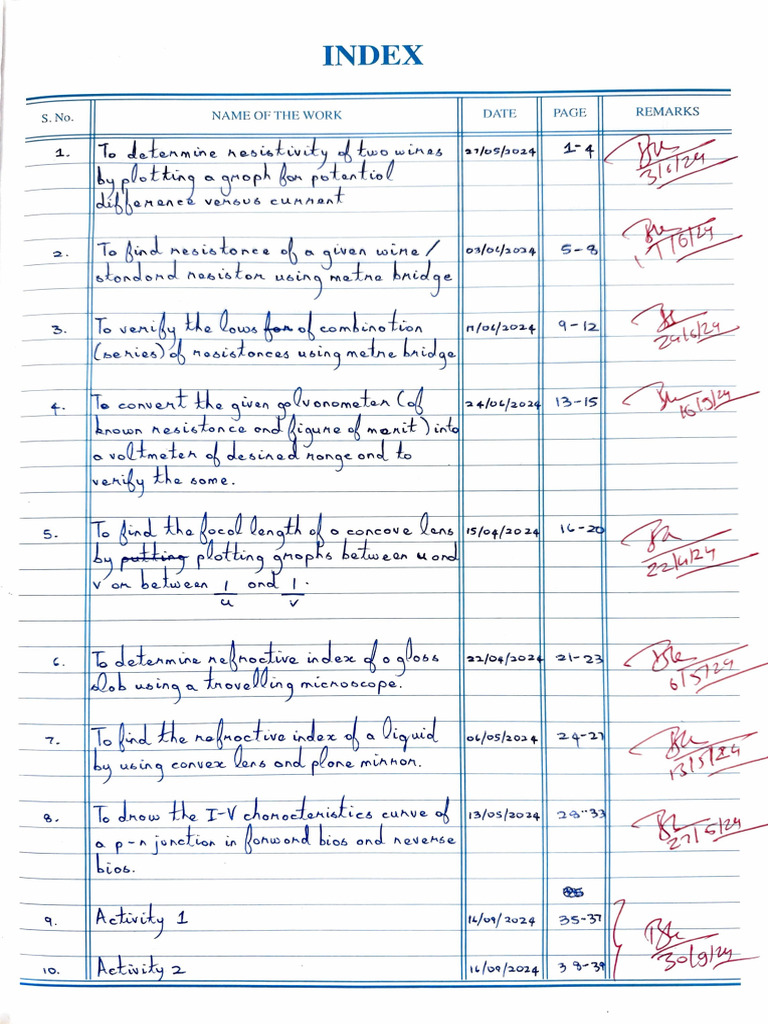 INDEX
S. No. NAME OF THE WORK DATE PAGE REMARKS
1. To determine resistivity of two wires 27/05/2024 1-4
by plotting a graph for potential 3/6/24
difference versus current
2. To find resistance of a given wire / 03/06/2024 5-8 11/6/24
standard resistor using metre bridge
3. To verify the laws for of combination 11/06/2024 9-12
(series) of resistances using metre bridge 24/6/24
4. To convert the given galvanometer (of 24/06/2024 13-15 16/9/24
known resistance and figure of merit) into
a voltmeter of desired range and to
verify the same.
5. To find the focal length of a concave lens 15/04/2024 16-20
by putting plotting graphs between u and 22/4/24
v or between 1/u and 1/v.
6. To determine refractive index of a glass 22/04/2024 21-23
slab using a travelling microscope. 6/5/24
7. To find the refractive index of a liquid 06/05/2024 24-27
by using convex lens and plane mirror. 13/5/24
8. To draw the I-V characteristics curve of 13/05/2024 28-33
a p-n junction in forward bias and reverse 27/5/24
bias.
9. Activity 1 16/09/2024 35-37
10. Activity 2 16/09/2024 38-39 30/9/24